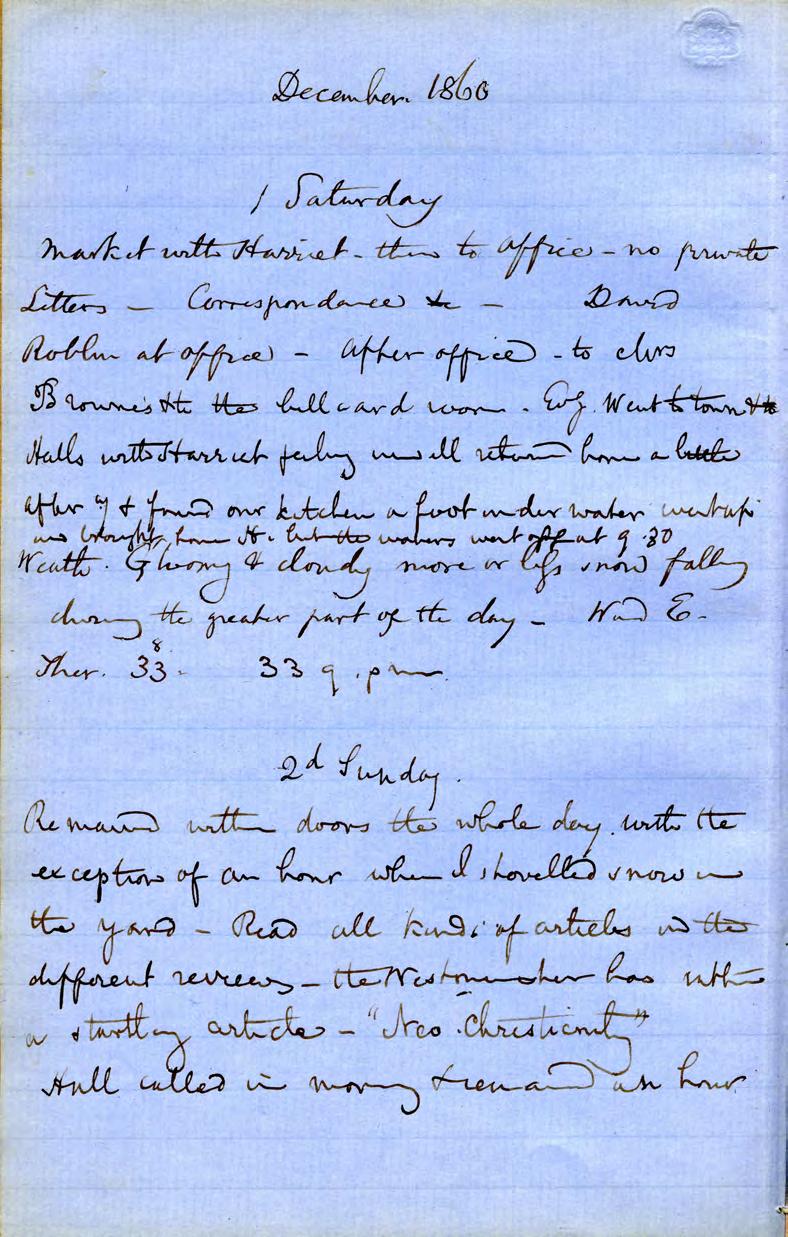 December. 1860
1 Saturday
Market with Harriet - then to office - no private
Letters - Correspondance &c - David
Roblin at office - After office - to Chrs
Browne's & to the billiard room. Evg. Went to town & to
Halls with Harriet feeling unwell returned home a little
after 7 & found our kitchen a foot under water went up
and brought home H. but the waters went off at 9.30
Weath. Gloomy & cloudy more or less snow falling
during the greater part of the day - Wind E.
Ther. 33 8. 33 9 p m
2d Sunday.
Remained within doors the whole day with the
exception of an hour when I shovelled snow in
the yard - Read all kinds of articles in the
different reviews - the Westminster has rather
a startling article - "Neo-Christianity"
Hall called in morning & remained an hour